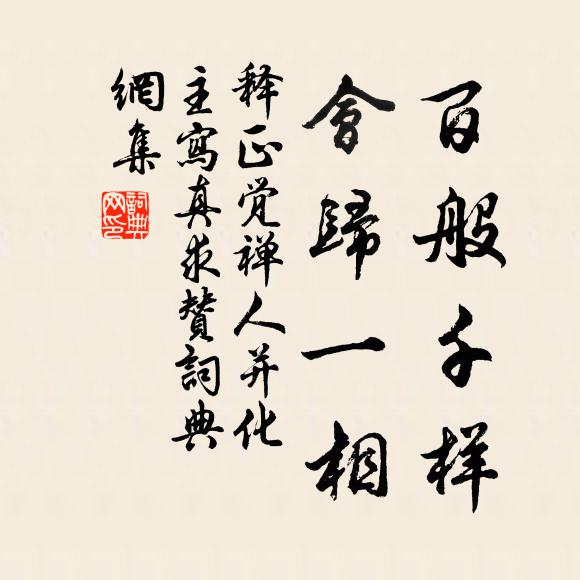 百般千样
會歸一相
释正觉禅人并化
主寫真求赞詞典
網集
詞典网印